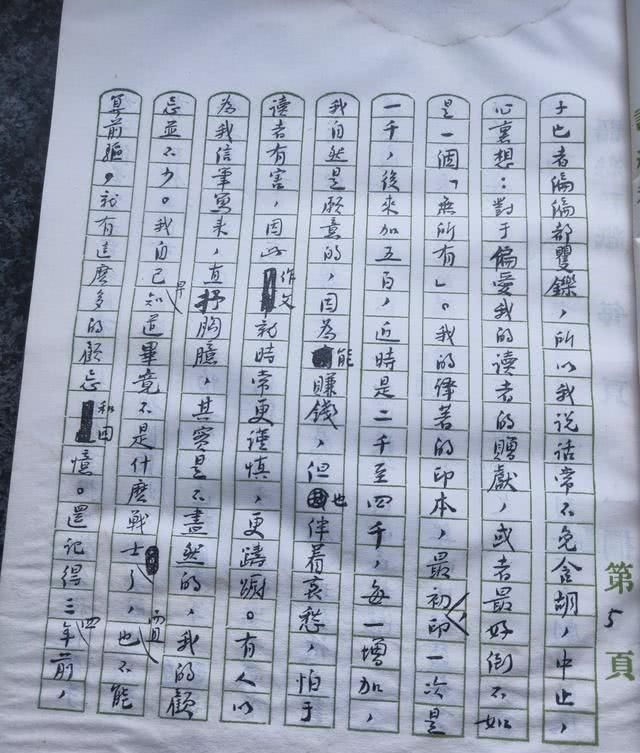 子也者偏偏都矍鑠，所以我说话常不免含胡，中止，
心裏想：對于偏愛我的读者的贈獻，或者最好倒不如
是一個「無所有」。我的譯著的印本，最初印一次是
一千，後來加五百，近時是二千至四千，每一增加，
我自然是願意的，因為能賺錢，但也伴着哀愁，怕于
读者有害，因此作文就時常更謹慎，更躊躇。有人以
為我信筆寫來，直抒胸臆，其實是不盡然的，我的顧
忌並不少。我自己早知道畢竟不是什麽戰士了，而且也不能
算前驅，就有這麽多的顧忌和回憶。還記得三四年前，
第5頁